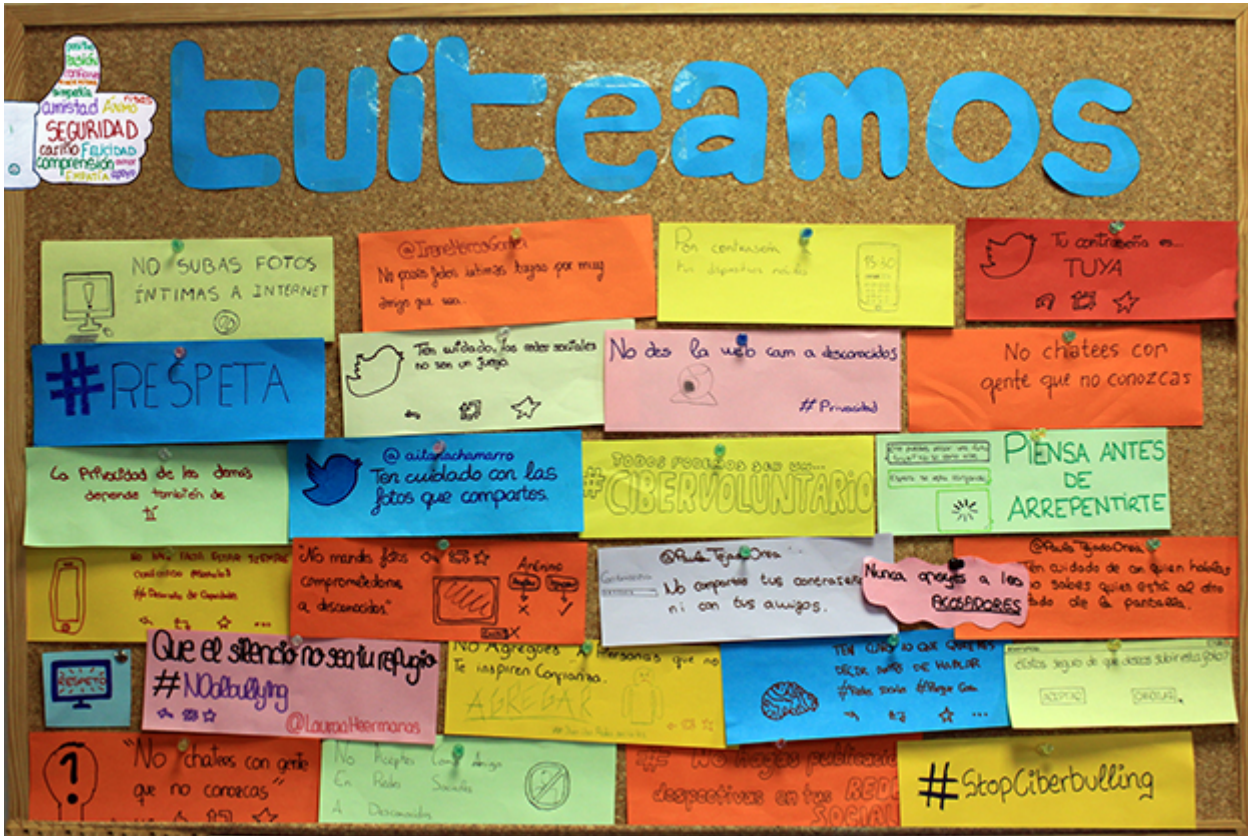 positivo
pasión
confianza
simpatía
amistad Ánimo
SEGURIDAD
cariño FELICIDAD
comprensión amor
EMPATÍA apoyo
tuiteamos
NO SUBAS FOTOS
ÍNTIMAS A INTERNET
No pases fotos íntimas tuyas por muy
amigo que sea..
Pon contraseña
tu dispositivo móvil
15:30
Tu contraseña es...
TUYA
#RESPETA
Ten cuidado, las redes sociales
no son un juego.
No des la web cam a desconocidos
# Privacidad
No chatees con
gente que no conozcas
La Privacidad de los demás
depende también de
tí
@aitanachamarro
Ten cuidado con las
fotos que compartes.
TODOS PODEMOS SER UN...
#CIBERVOLUNTARIO
PIENSA ANTES
DE
ARREPENTIRTE
NO HACE FALTA ESTAR SIEMPRE
"No mandes fotos
comprometedoras
a desconocidos."
Anónimo
@Paula Tejado Orea
Contraseña
No compartas tus contraseñas
ni con tus amigos.
Nunca apoyes a los
ACOSADORES
@Paula Tejado Orea
Ten cuidado de con quien hablas
no sabes quien está al otro
lado de la pantalla.
RESPETO
Que el silencio no sea tu refugio
#NOalbullying
@LauraaHeermanas
NO Agregues Personas que no
Te inspiren Confianza.
AGREGAR
TEN CLARO LO QUE QUIERES
DECIR ANTES DE HABLAR
¿Estás seguro de que deseas subir esta foto?
ACEPTAR
CANCELAR
?
"No chatees con gente
que no conozcas"
No Aceptes Como Amigo
En Redes Sociales
A Desconocidos
# No hagas publicaciones
despectivas en tus REDES
SOCIALES
#StopCiberbulling